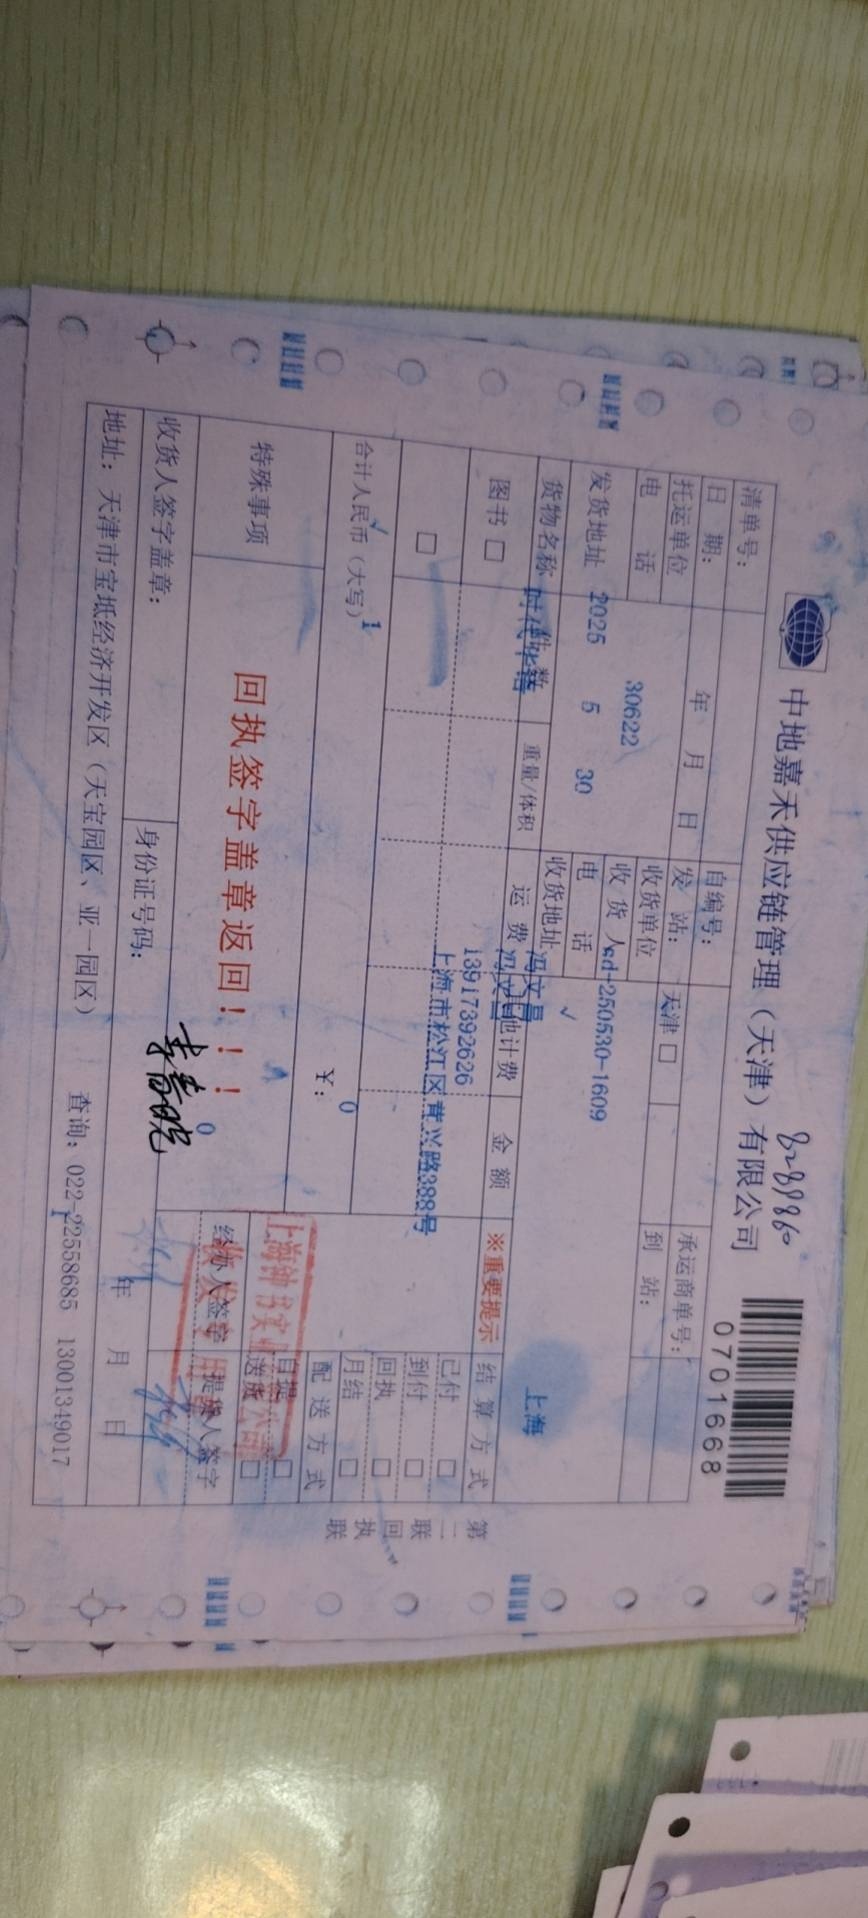 中地嘉禾供应链管理（天津）有限公司
0701668
清单号：
自编号：
承运商单号：
日 期： 年 月 日
发 站： 天津 □
到 站：
托运单位
收货单位
电 话 30622
收 货 人 sd-250530-1609
发货地址 2025 5 30
电 话 √
收货地址 冯文昌
上海
货物名称 件数 重量/体积 运 费 金 额
时代华语
※重要提示
结 算 方 式
图书 □
13917392626
上海市松江区茸兴路388号
已付 □
到付 □
回执 □
月结 □
□
合计人民币（大写） 1
￥： 0
配 送 方 式
自提 □
送货 □
特殊事项
回执签字盖章返回！！！
0
经办人签字
提货人签字
收货人签字盖章：
身份证号码：
年 月 日
地址：天津市宝坻经济开发区（天宝园区、亚一园区）
查询：022-22558685 13001349017
第二联 回执联